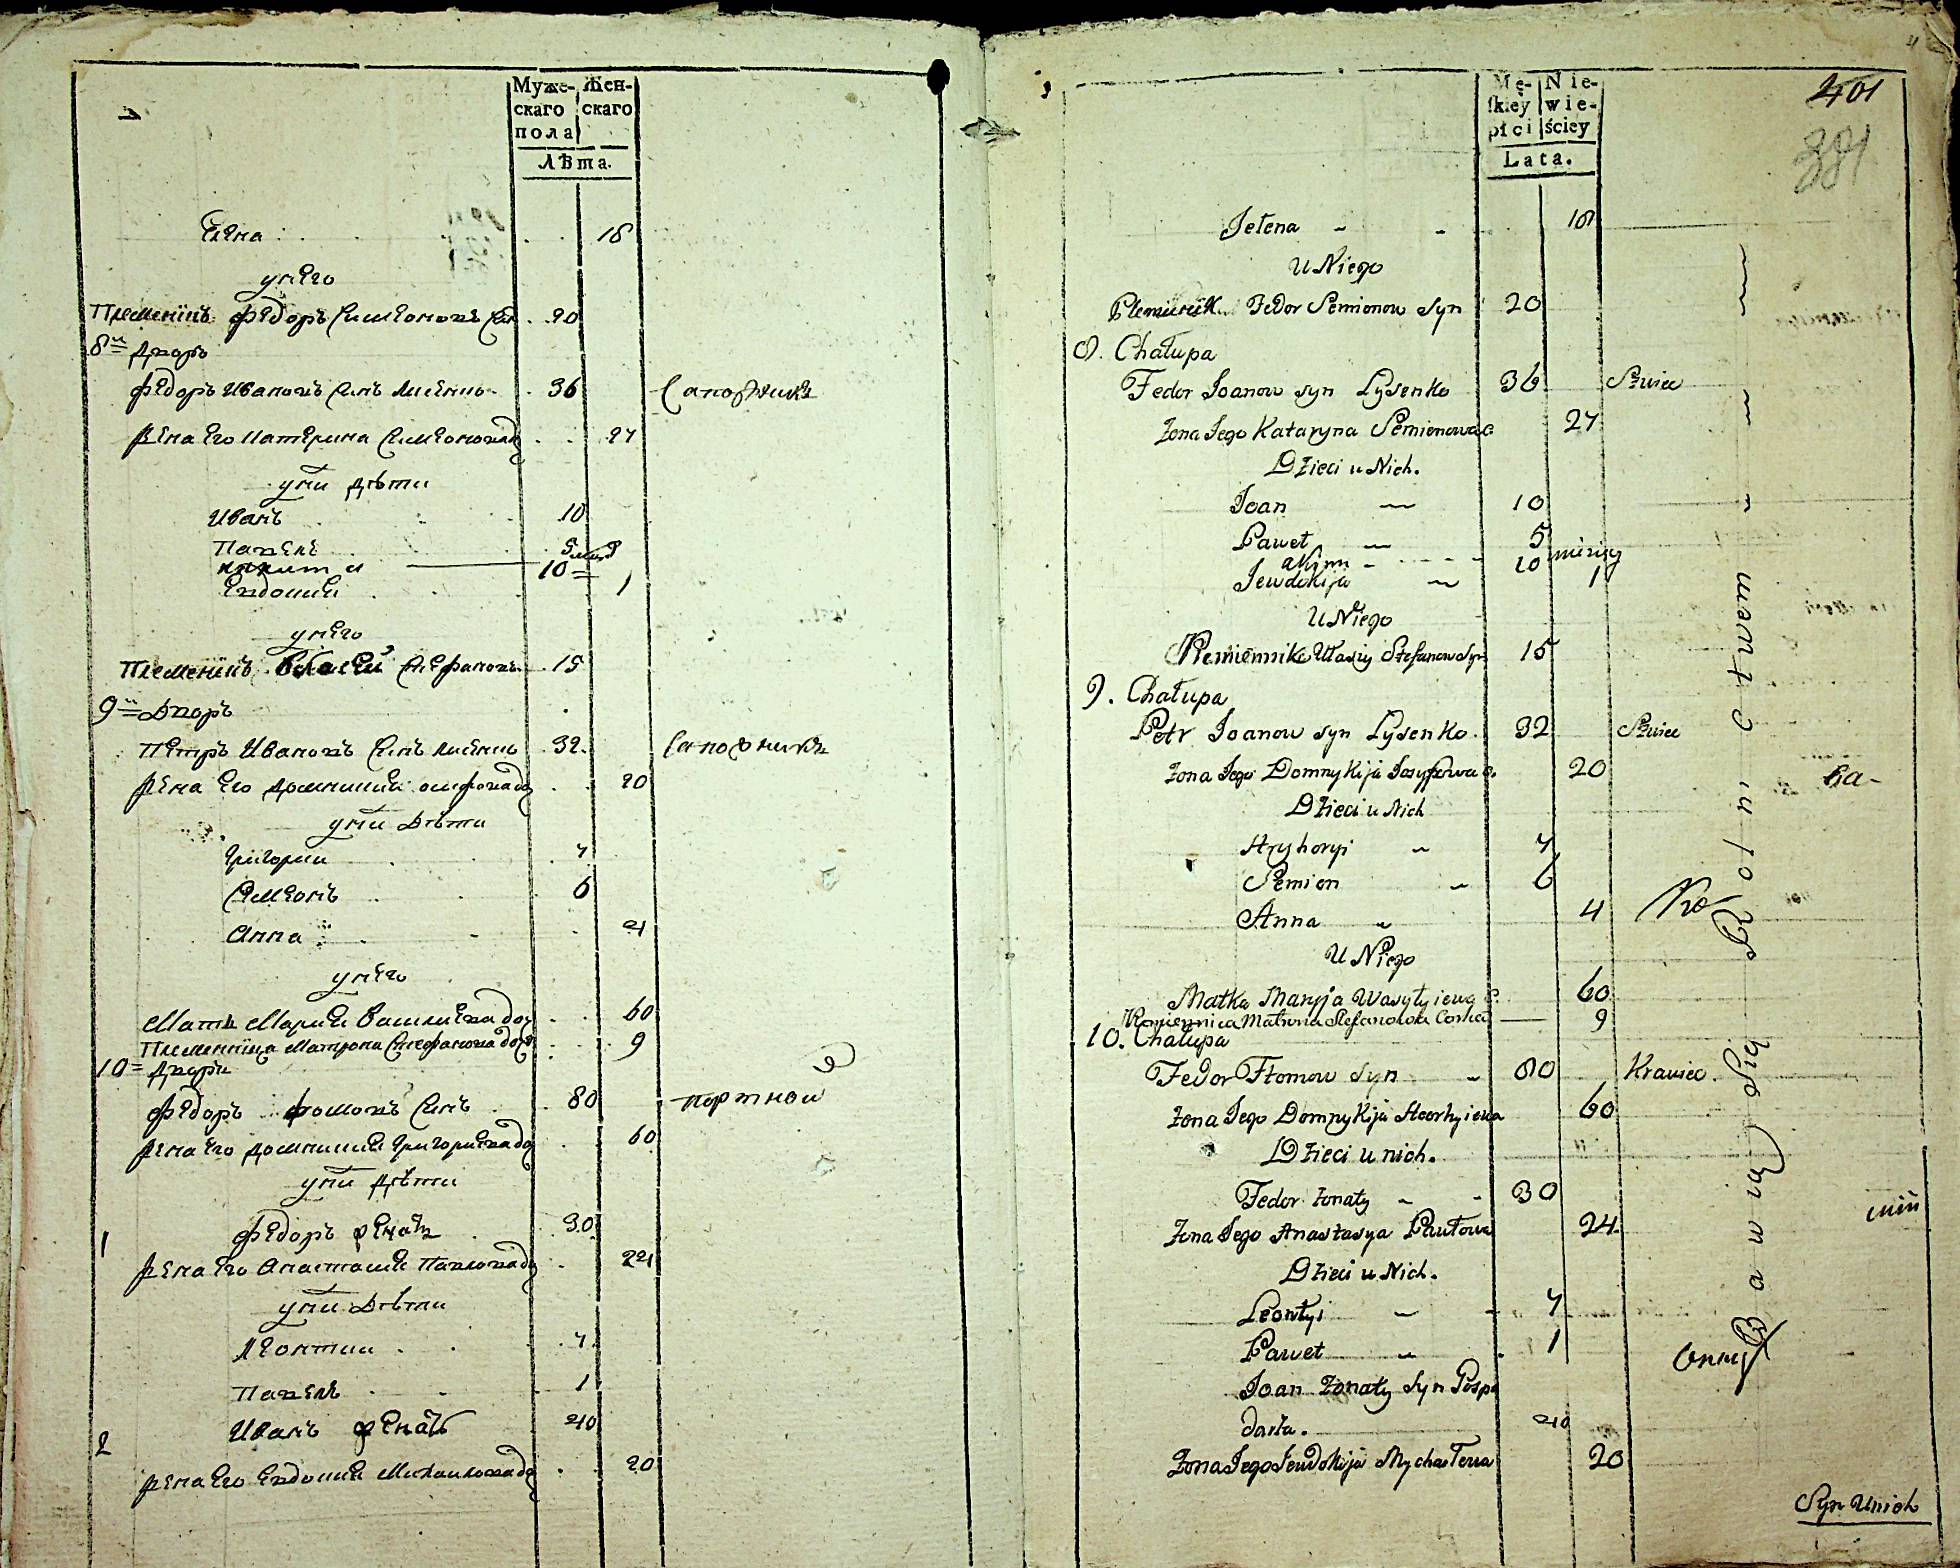 Муже- Жен-
скаго скаго
пола
Лѣта.
Елена 18
у него
Племенникъ Федоръ Симеоновъ сынъ 20
8й Дворъ
Федоръ Ивановъ сынъ Лисенко 36 Сапожникъ
Жена его Катерина Симеонова до 27
у них дѣти
Иванъ 10
Павелъ 5
10
Евдокия 1
у него
Племенникъ Власей Стефановъ 15
9й Дворъ
Петръ Ивановъ сынъ Лисенко 32 Сапожникъ
Жена его Домникия Осифова до 20
у них дѣти
Григории 7
Симеонъ 6
Анна 4
у него
Мать Мария Василиева до 60
Племенница Матрона Стефанова доч 9
10 Дворъ
Федоръ Фомовъ сынъ 80 портной
Жена его Домникия Григориева до 60
у них дѣти
1 Федоръ женатъ 30
Жена его Анастасия Павлова до 24
у них дѣти
Леонтии 7
Павелъ 1
2 Иванъ женатъ 40
Жена его Евдокия Михаилова до 20
Mę- Nie-
skiey wie-
płci ściey
Lata.
401
381
Jelena 18
U Niego
Plemiennik Fedor Semionow Syn 20
8. Chałupa
Fedor Joanow syn Lysenko 36 Szwiec
Żona Jego Kataryna Semienowa c. 27
Dzieci u Nich.
Joan 10
Paweł 5
Akim 10 miesięcy
Jewdokija 1
U Niego
Plemiennik Własiy Stefanow Syn 15
9. Chałupa
Petr Joanow syn Lysenko 32 Szwiec
Żona Jego Domnykija Josyfowa c. 20
Dzieci u Nich
Hryhoryi 7
Semion 6
Anna 4
U Niego
Matka Maryja Wasylyiewa c. 60
Plemiennica Matrona Stefanowa Corka 9
10. Chałupa
Fedor Fłomow Syn 80 Krawiec.
Żona Jego Domnykija Heorhyiewa 60
Dzieci u nich.
Fedor żonaty 30
Żona Jego Anastasya Pawłowa 24
Dzieci u Nich.
Leontyi 7
Paweł 1
Joan żonaty Syn Gospo
darza. 40
Żona Jego Jewdokija Mychałowa 20
Bawią Się Rolnictwem
Syn Unich